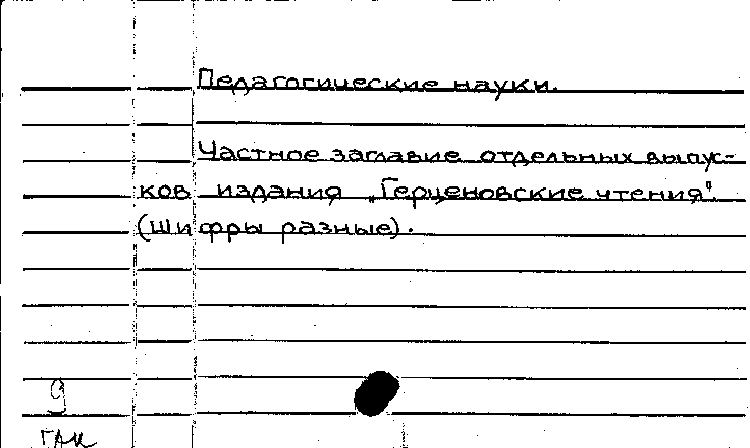 Педагогические науки.
Частное заглавие отдельных выпус-
ков издания „Герценовские чтения"
(шифры разные).
9